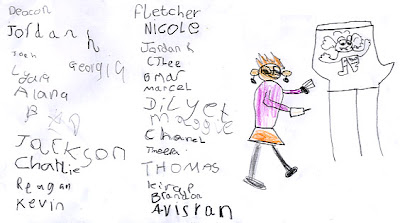 Deacon
Jordan h
Josh
Georgia
Lydia
Alana
Jackson
Charlie
Reugan
Kevin
Fletcher
NICOLE
Jordan k
CJLee
omar
marcel
Dilyet
maggie
Chanel
THOMAS
Kirap
Brandon
Avistan